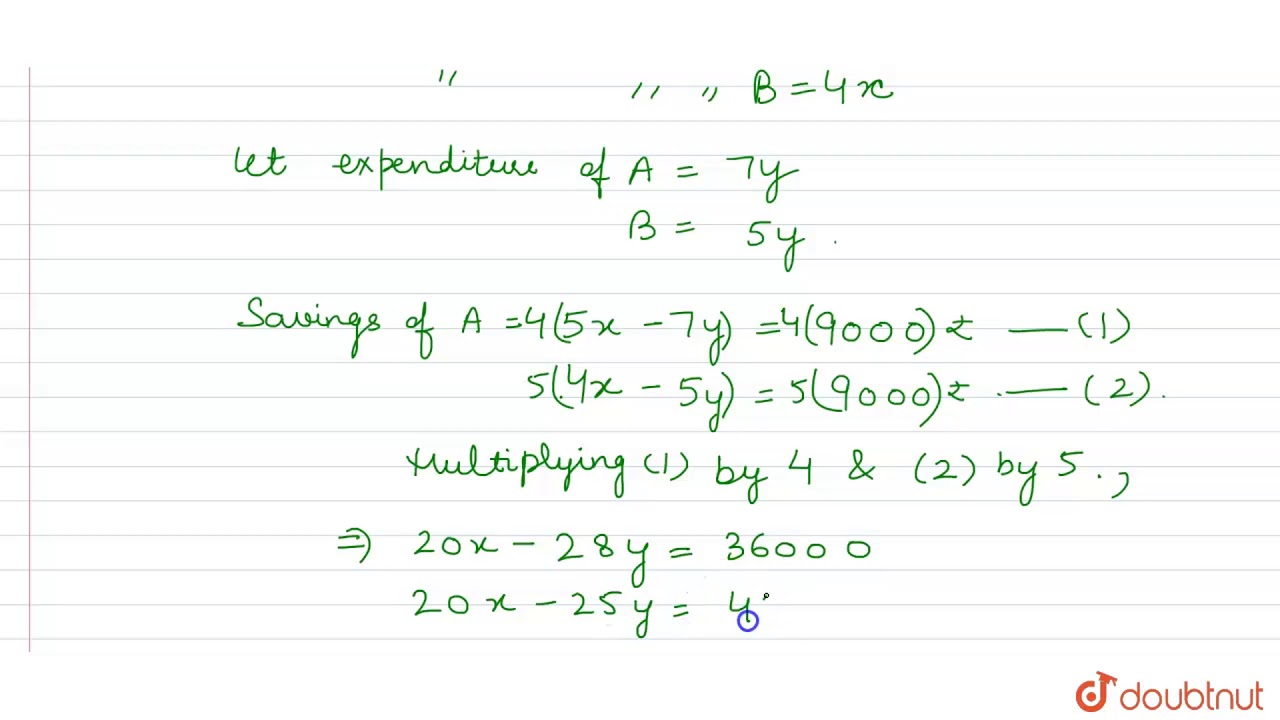 " " " B = 4x
Let expenditure of A = 7y
B = 5y .
Savings of A = 4(5x - 7y) = 4(9000)₹ — (1)
5(4x - 5y) = 5(9000)₹ . — (2).
Multiplying (1) by 4 & (2) by 5.,
⇒ 20x - 28y = 36000
20x - 25y = 4
doubtnut